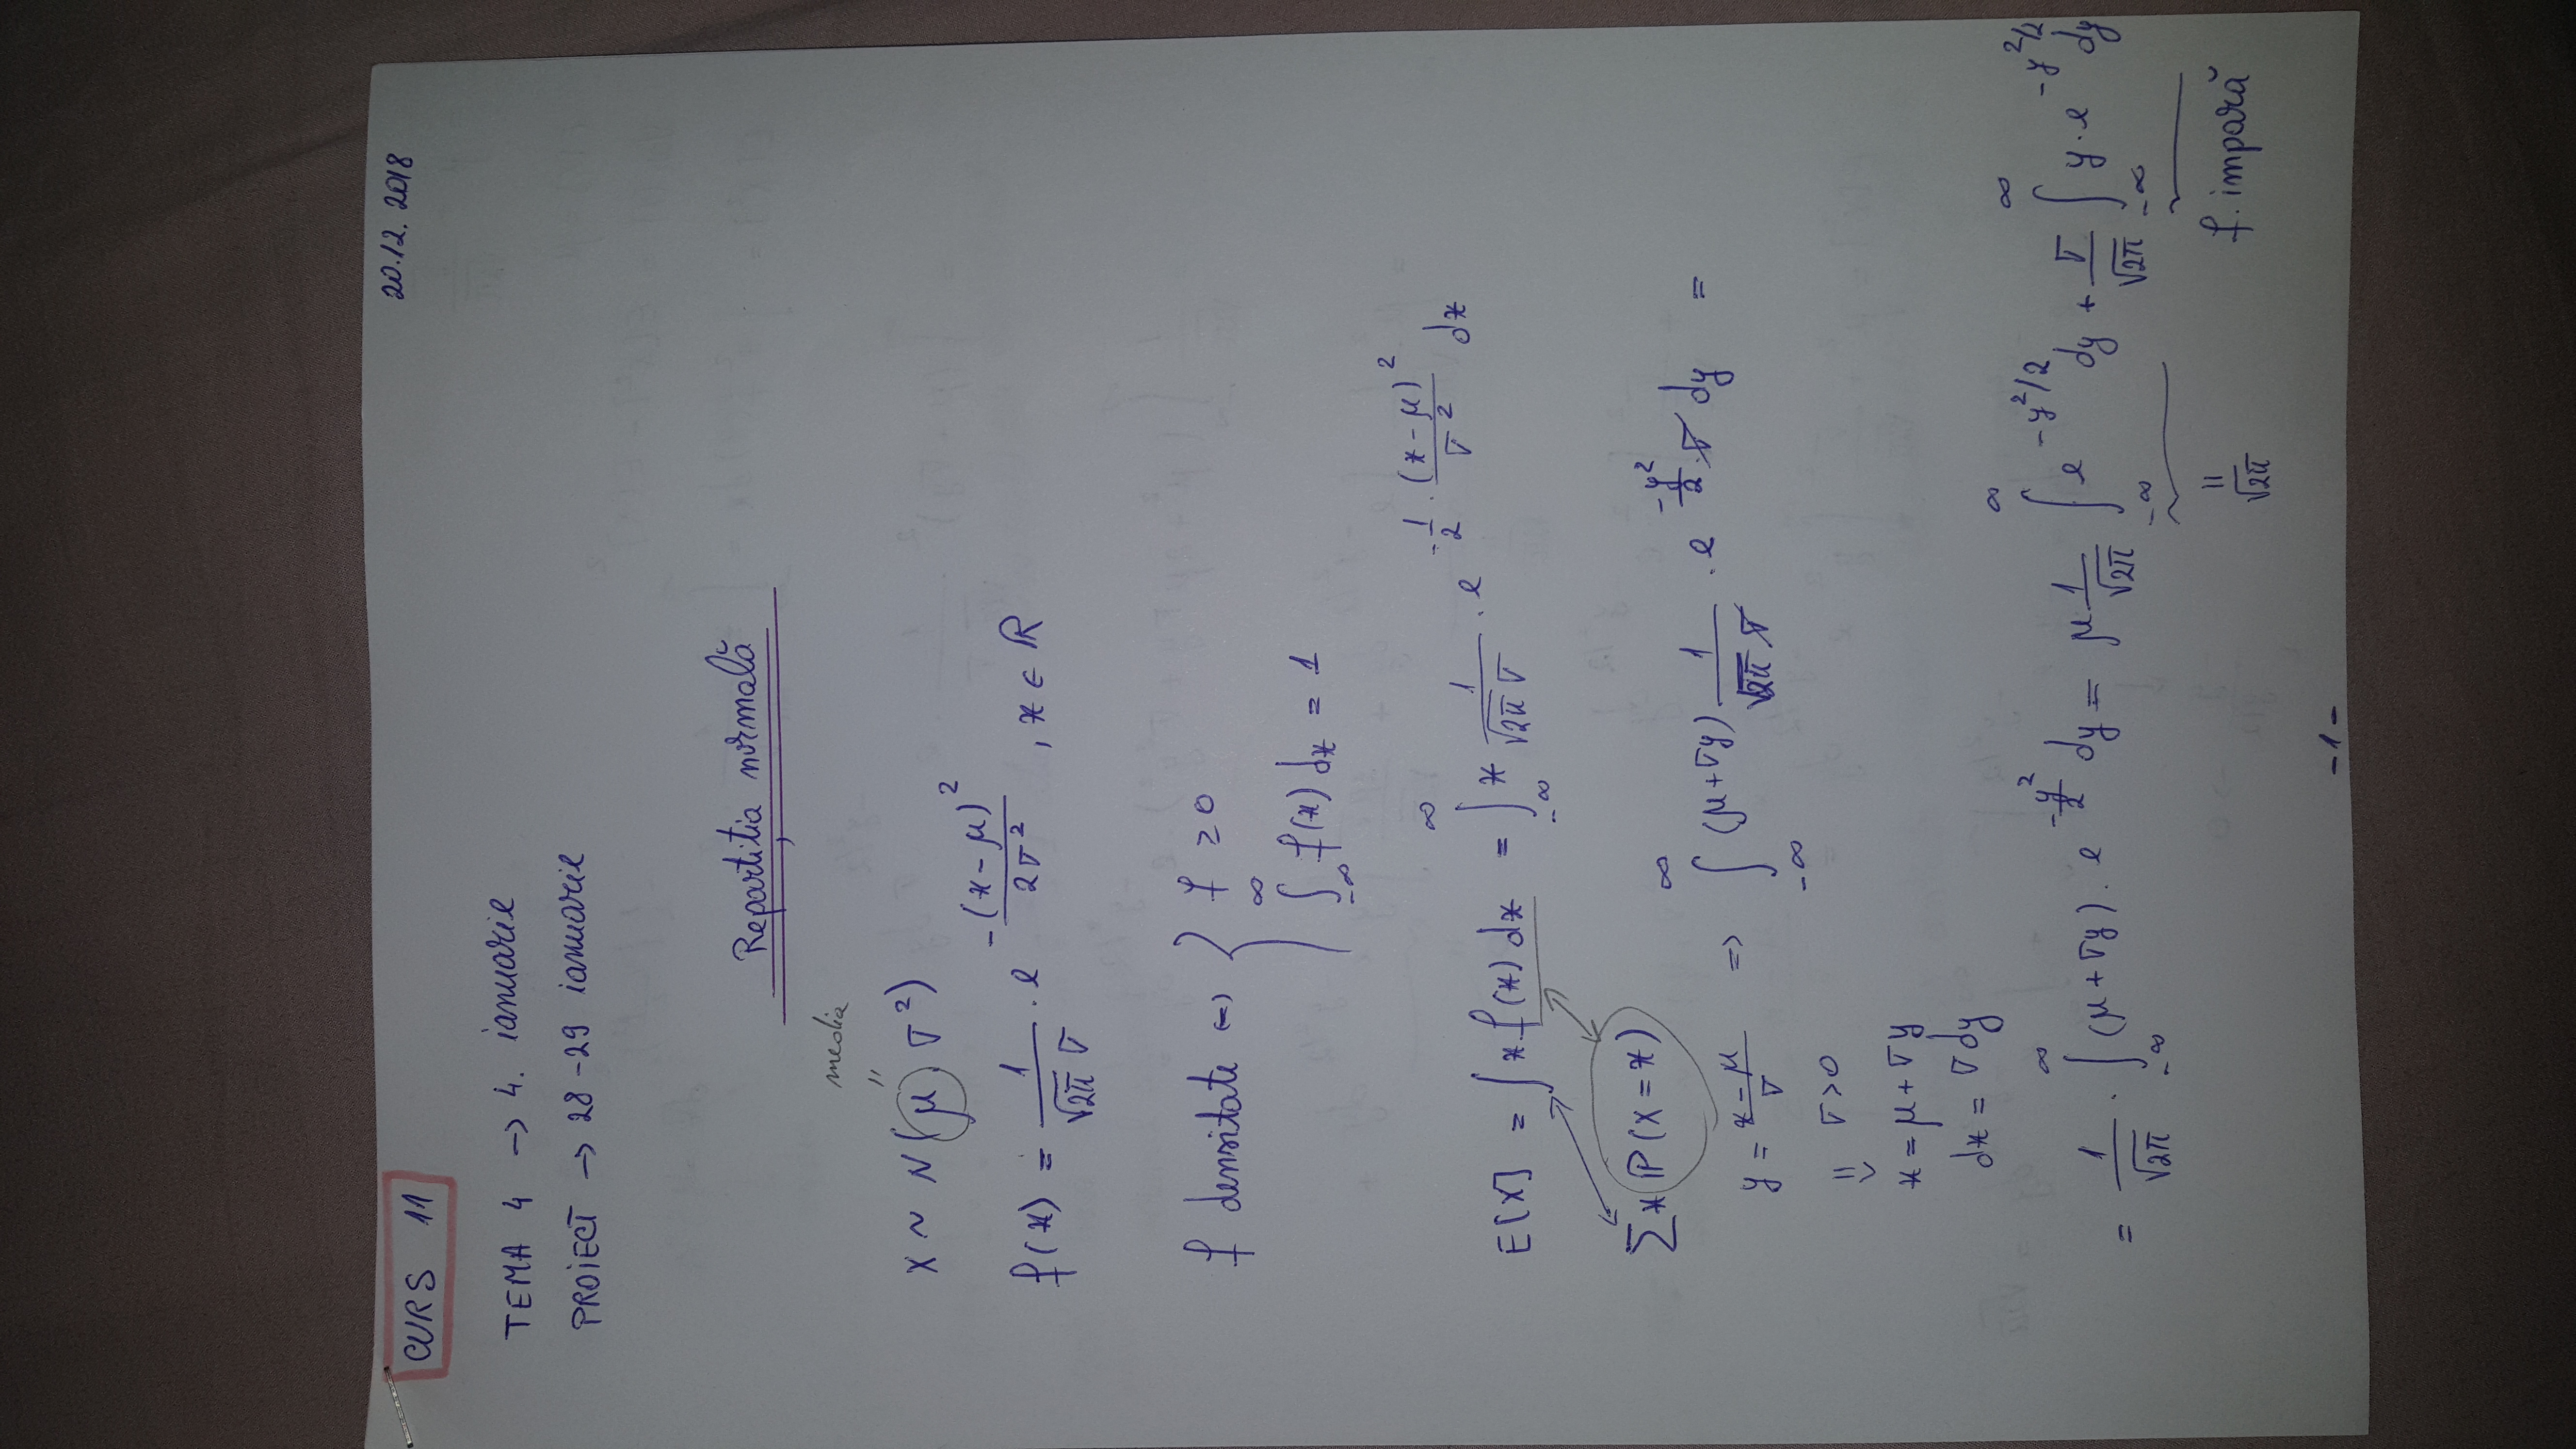 CURS 11
20.12.2018
TEMA 4 → 4. ianuarie
PROIECT → 28-29 ianuarie
Repartiția normală
media
"
X ~ N(μ, σ²)
f(x) = 1/(√2π σ) · e^(-(x-μ)²/(2σ²)), x ∈ ℝ
f densitate ⇔ { f ≥ 0
∫_{-∞}^{∞} f(x) dx = 1
E[X] = ∫ x f(x) dx = ∫_{-∞}^{∞} x 1/(√2π σ) · e^(-1/2 · (x-μ)²/σ²) dx
Σ x ℙ(X = x)
y = (x-μ)/σ ⇒ ∫_{-∞}^{∞} (μ+σy) 1/(√2π σ) · e^(-y²/2) · σ dy =
⇓ σ > 0
x = μ + σy
dx = σ dy
= 1/√2π · ∫_{-∞}^{∞} (μ+σy) · e^(-y²/2) dy = μ 1/√2π ∫_{-∞}^{∞} e^(-y²/2) dy + σ/√2π ∫_{-∞}^{∞} y · e^(-y²/2) dy
=
√2π
f. impară
-1-